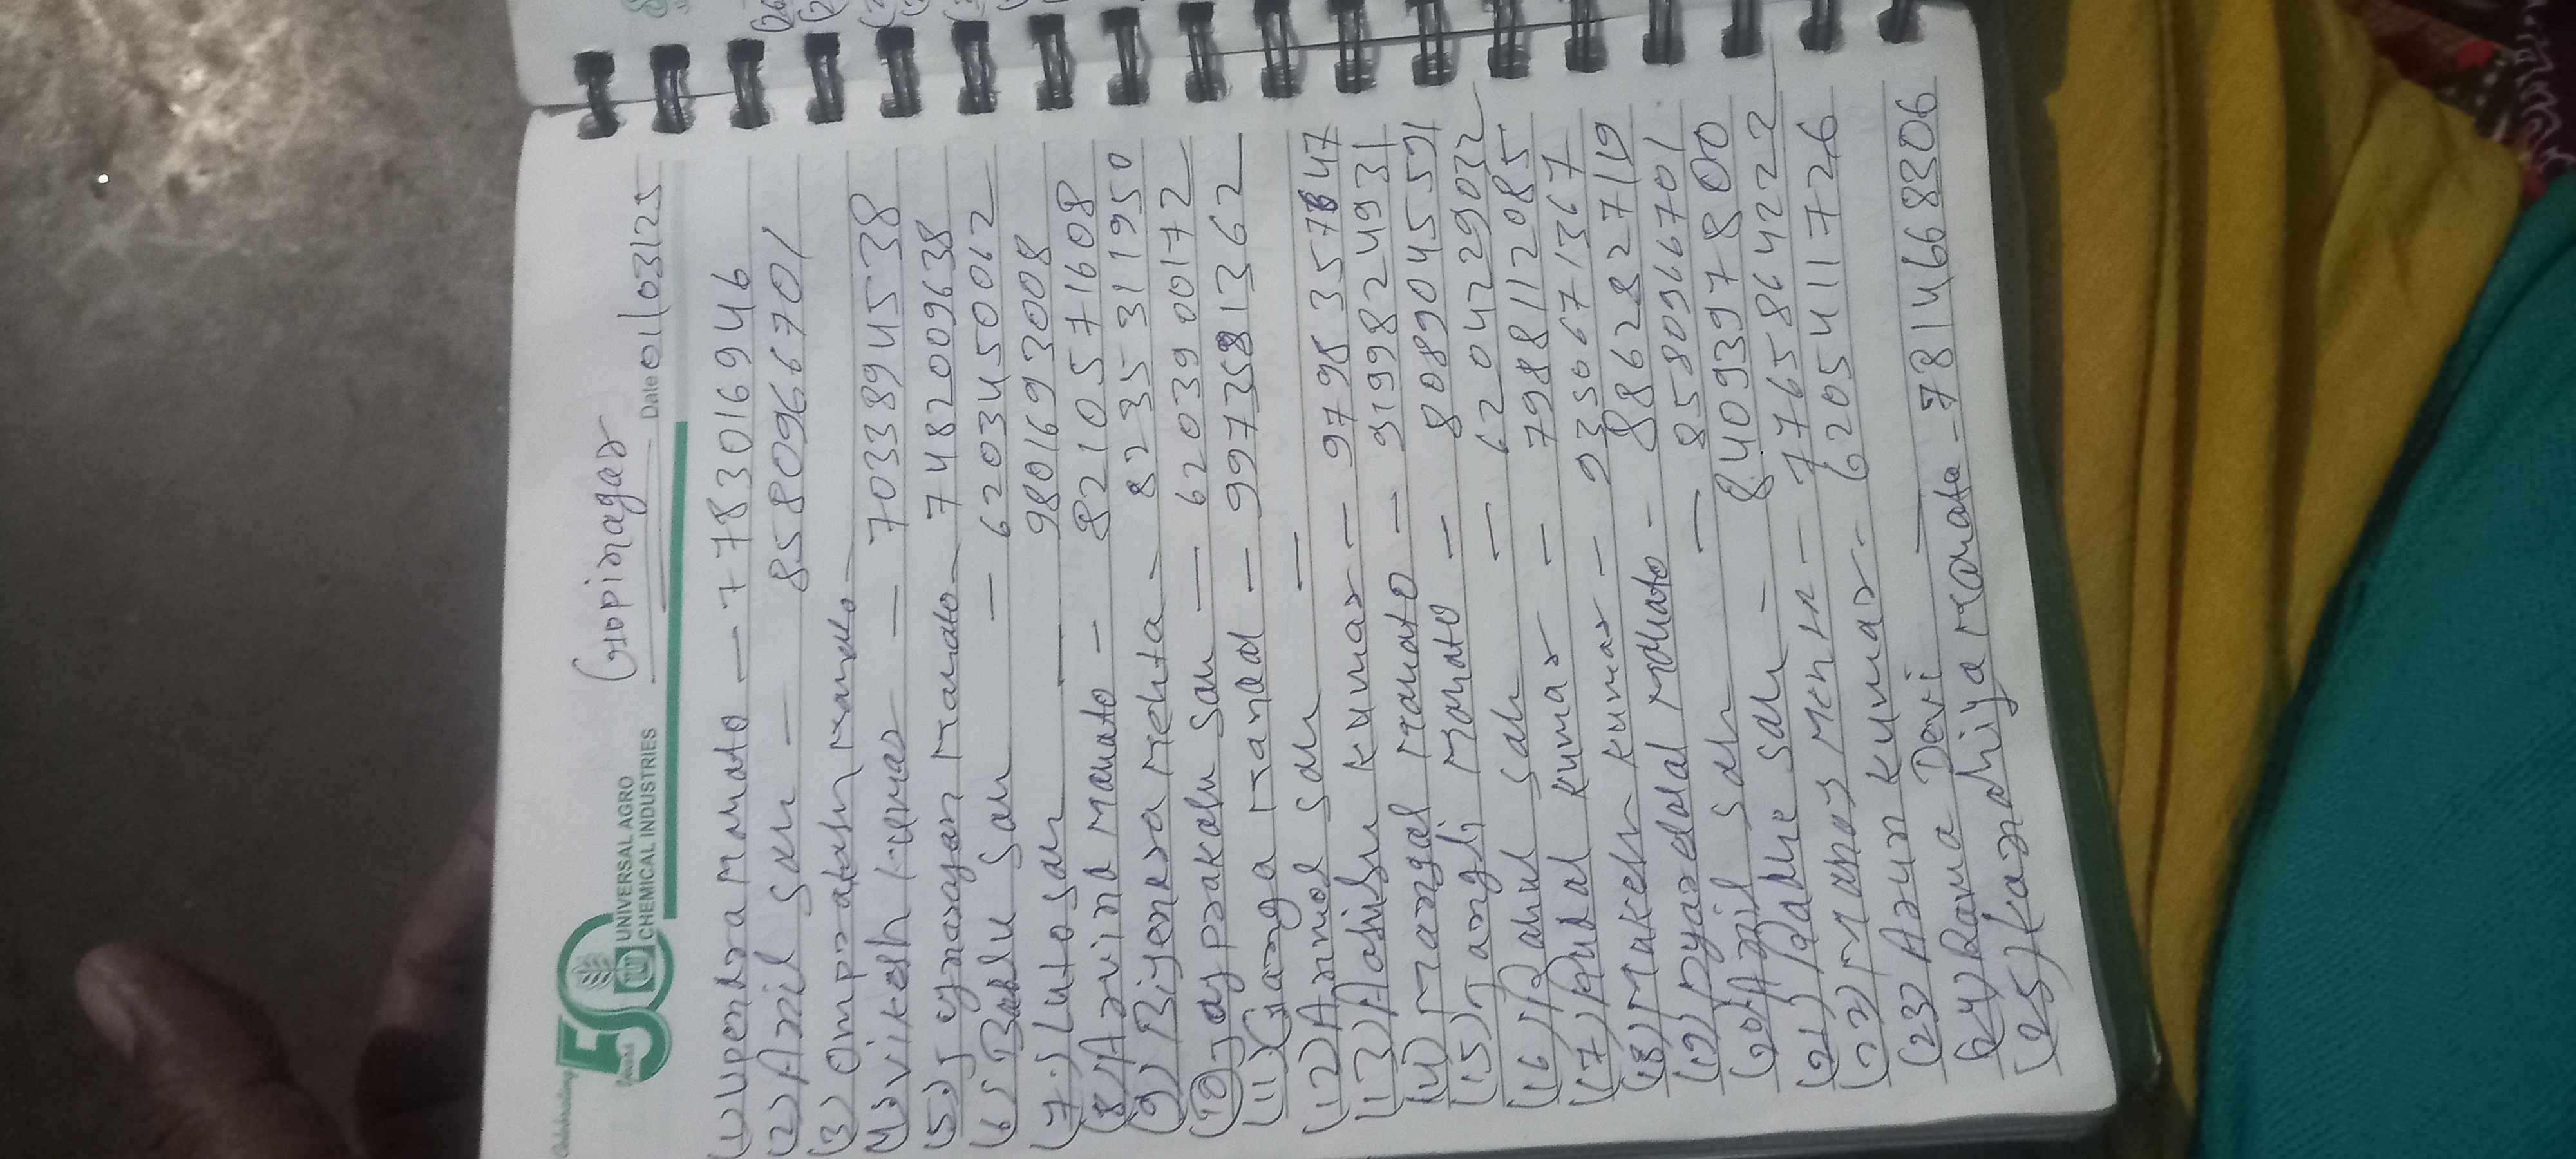 Celebrating
50
Years
UNIVERSAL AGRO
CHEMICAL INDUSTRIES
Gopinagar
Date 01/03/25
(1) Upendra Mahato — 7783016946
(2) Anil Sah — 8580966701
(3) Omprakash Mahato —
(4) Vikesh Kumar — 7033894538
(5) Jaynarayan Mahato — 7482009638
(6) Bablu Sah — 6203450062
(7) Lutosah — 9801693008
(8) Arvind Mahato — 8210571608
(9) Bijendra Mehta — 8235311950
(10) Jayprakash Sah — 6203900172
(11) Ganga Mandal — 9973581362
(12) Anmol Sah —
(13) Aashish Kumar — 9795357847
(14) Mangal Mahato — 9199824931
(15) Jangli Mahato — 8089045591
(16) Rahul Sah — 6204229032
(17) Rudal Kumar — 7988112085
(18) Mukesh Kumar — 9350671367
(19) Pyarelal Mahato — 8862827119
(20) Anil Sah — 8580966701
(21) Radhe Sah — 8409397800
(22) Manas Mehta — 7765864222
(23) Arun Kumar — 6205411726
(24) Rama Devi —
(25) Kanahiya Mahato — 7814668306